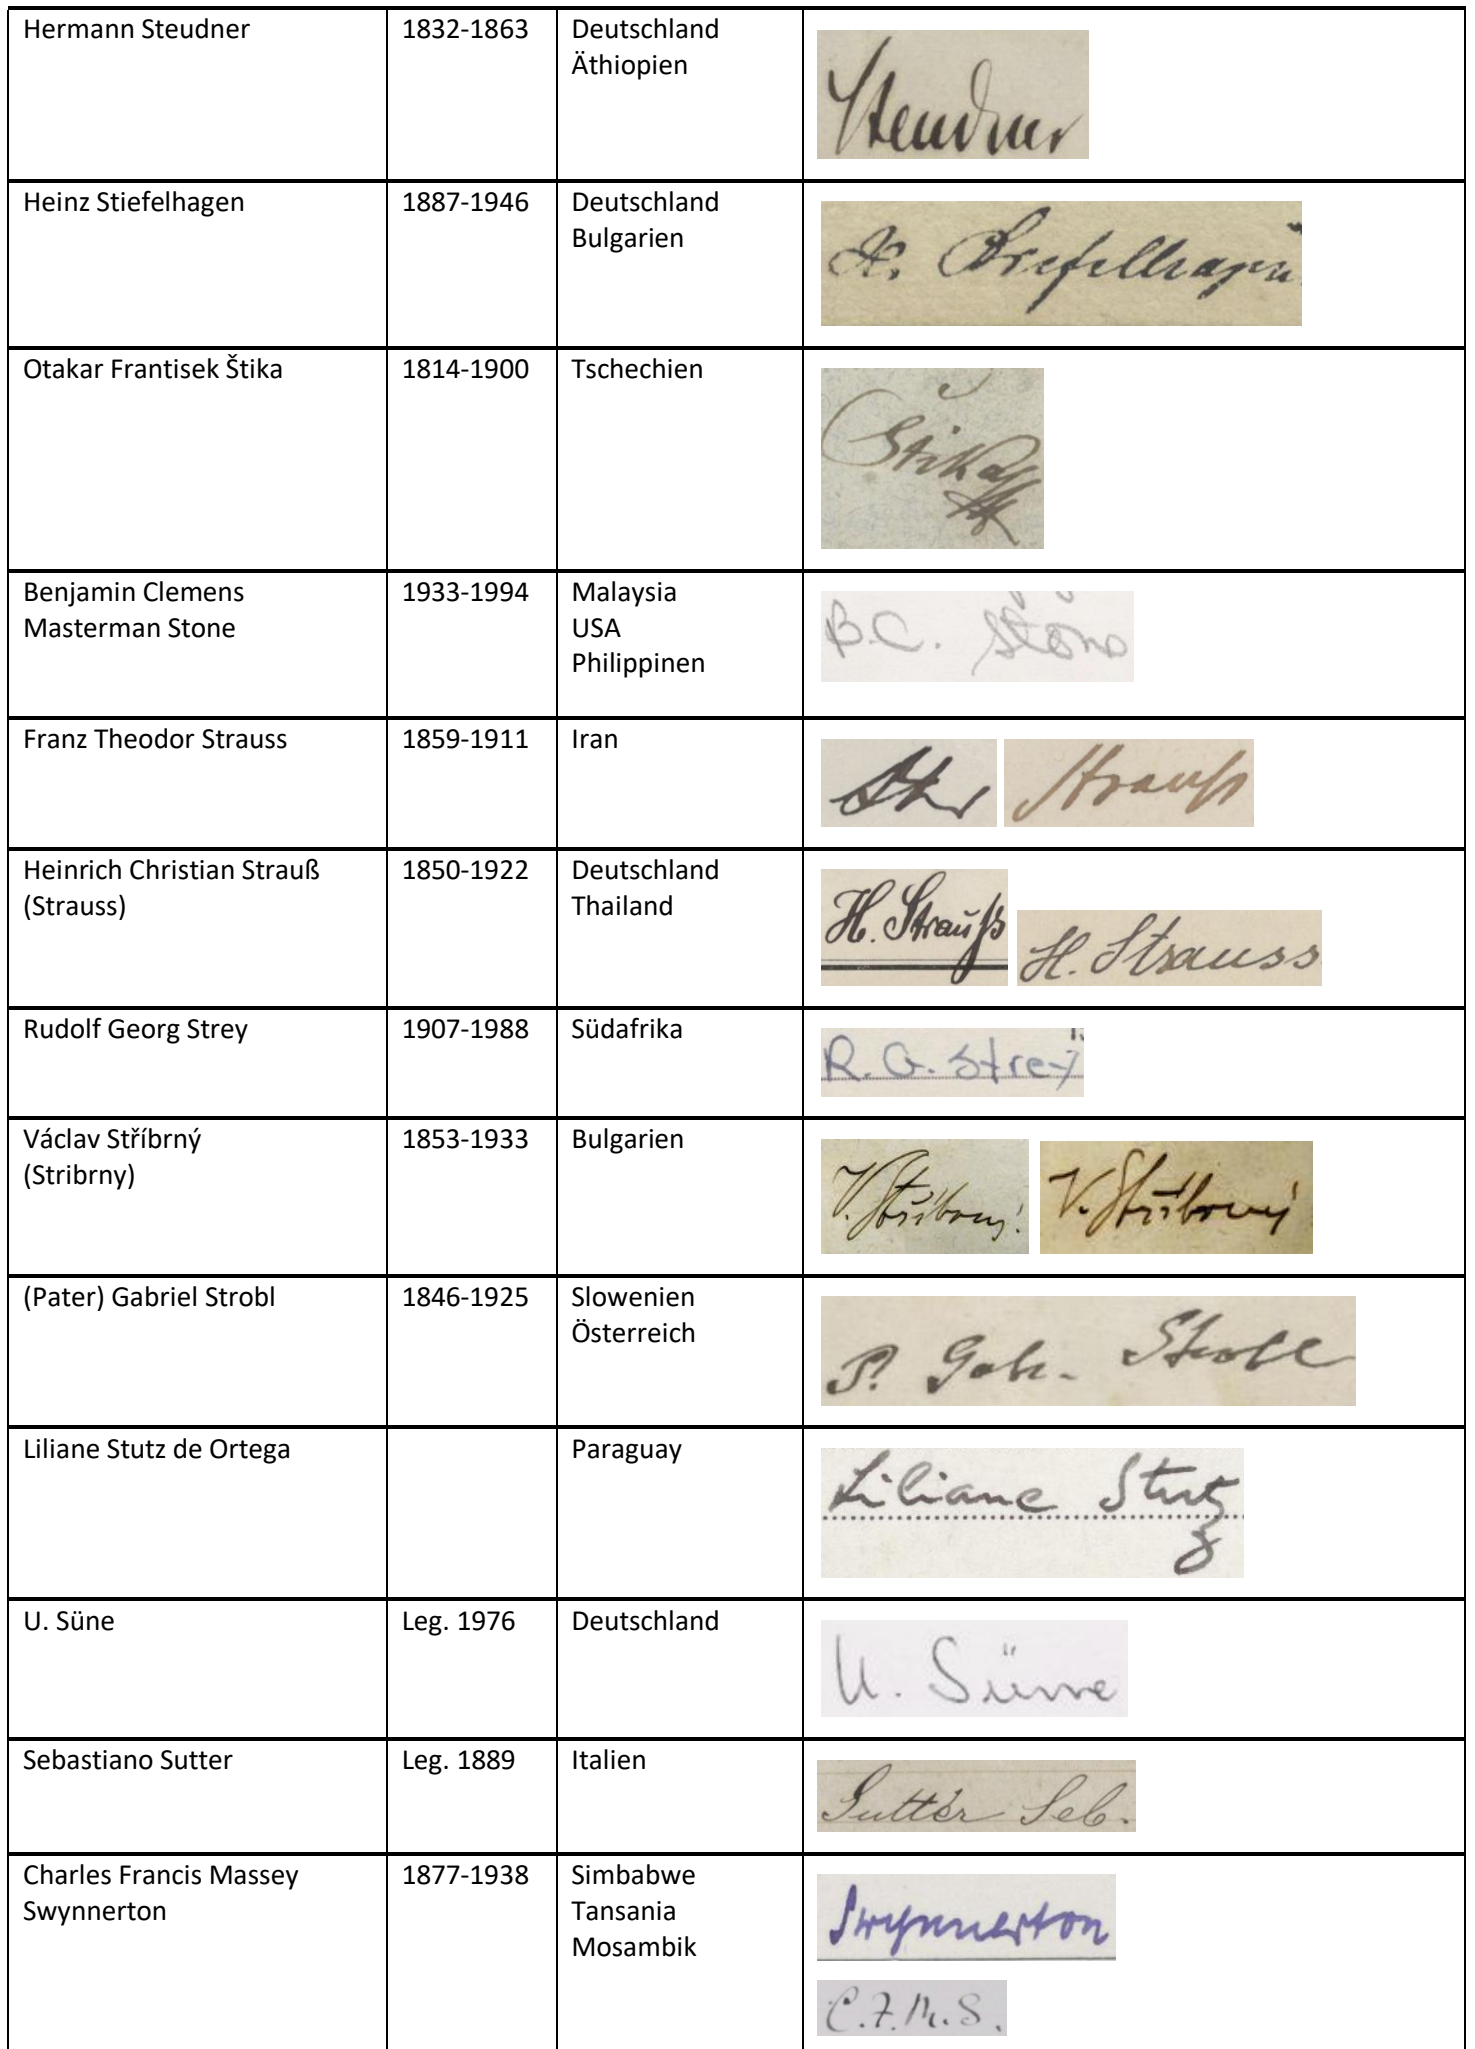 Hermann Steudner 1832-1863 Deutschland
Äthiopien
Steudner
Heinz Stiefelhagen 1887-1946 Deutschland
Bulgarien
H. Stiefelhagen
Otakar Frantisek Štika 1814-1900 Tschechien
Štika
Benjamin Clemens 1933-1994 Malaysia
Masterman Stone USA
Philippinen
B.C. Stone
Franz Theodor Strauss 1859-1911 Iran
Str Strauß
Heinrich Christian Strauß 1850-1922 Deutschland
(Strauss) Thailand
H. Strauß H. Strauss
Rudolf Georg Strey 1907-1988 Südafrika
R. G. Strey
Václav Stříbrný 1853-1933 Bulgarien
(Stribrny)
V. Stříbrný V. Stříbrný
(Pater) Gabriel Strobl 1846-1925 Slowenien
Österreich
P. Gab. Strobl
Liliane Stutz de Ortega Paraguay
Liliane Stutz
U. Süne Leg. 1976 Deutschland
U. Süne
Sebastiano Sutter Leg. 1889 Italien
Sutter Seb.
Charles Francis Massey 1877-1938 Simbabwe
Swynnerton Tansania
Mosambik
Swynnerton
C.F.M.S.